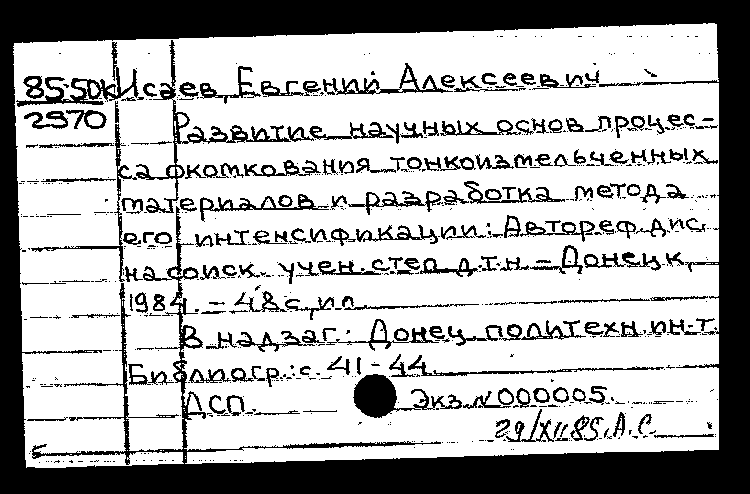 85-50к Исаев, Евгений Алексеевич
2970 Развитие научных основ процес-
са окомкования тонкоизмельченных
материалов и разработка метода
его интенсификации: Автореф. дис.
на соиск. учен. степ д.т.н. - Донецк,
1984. - 48 с., ил.
В надзаг.: Донец. политехн. ин-т.
Библиогр.: с. 41-44.
ДСП. Экз. № 000005.
29/XII 85. А.С.